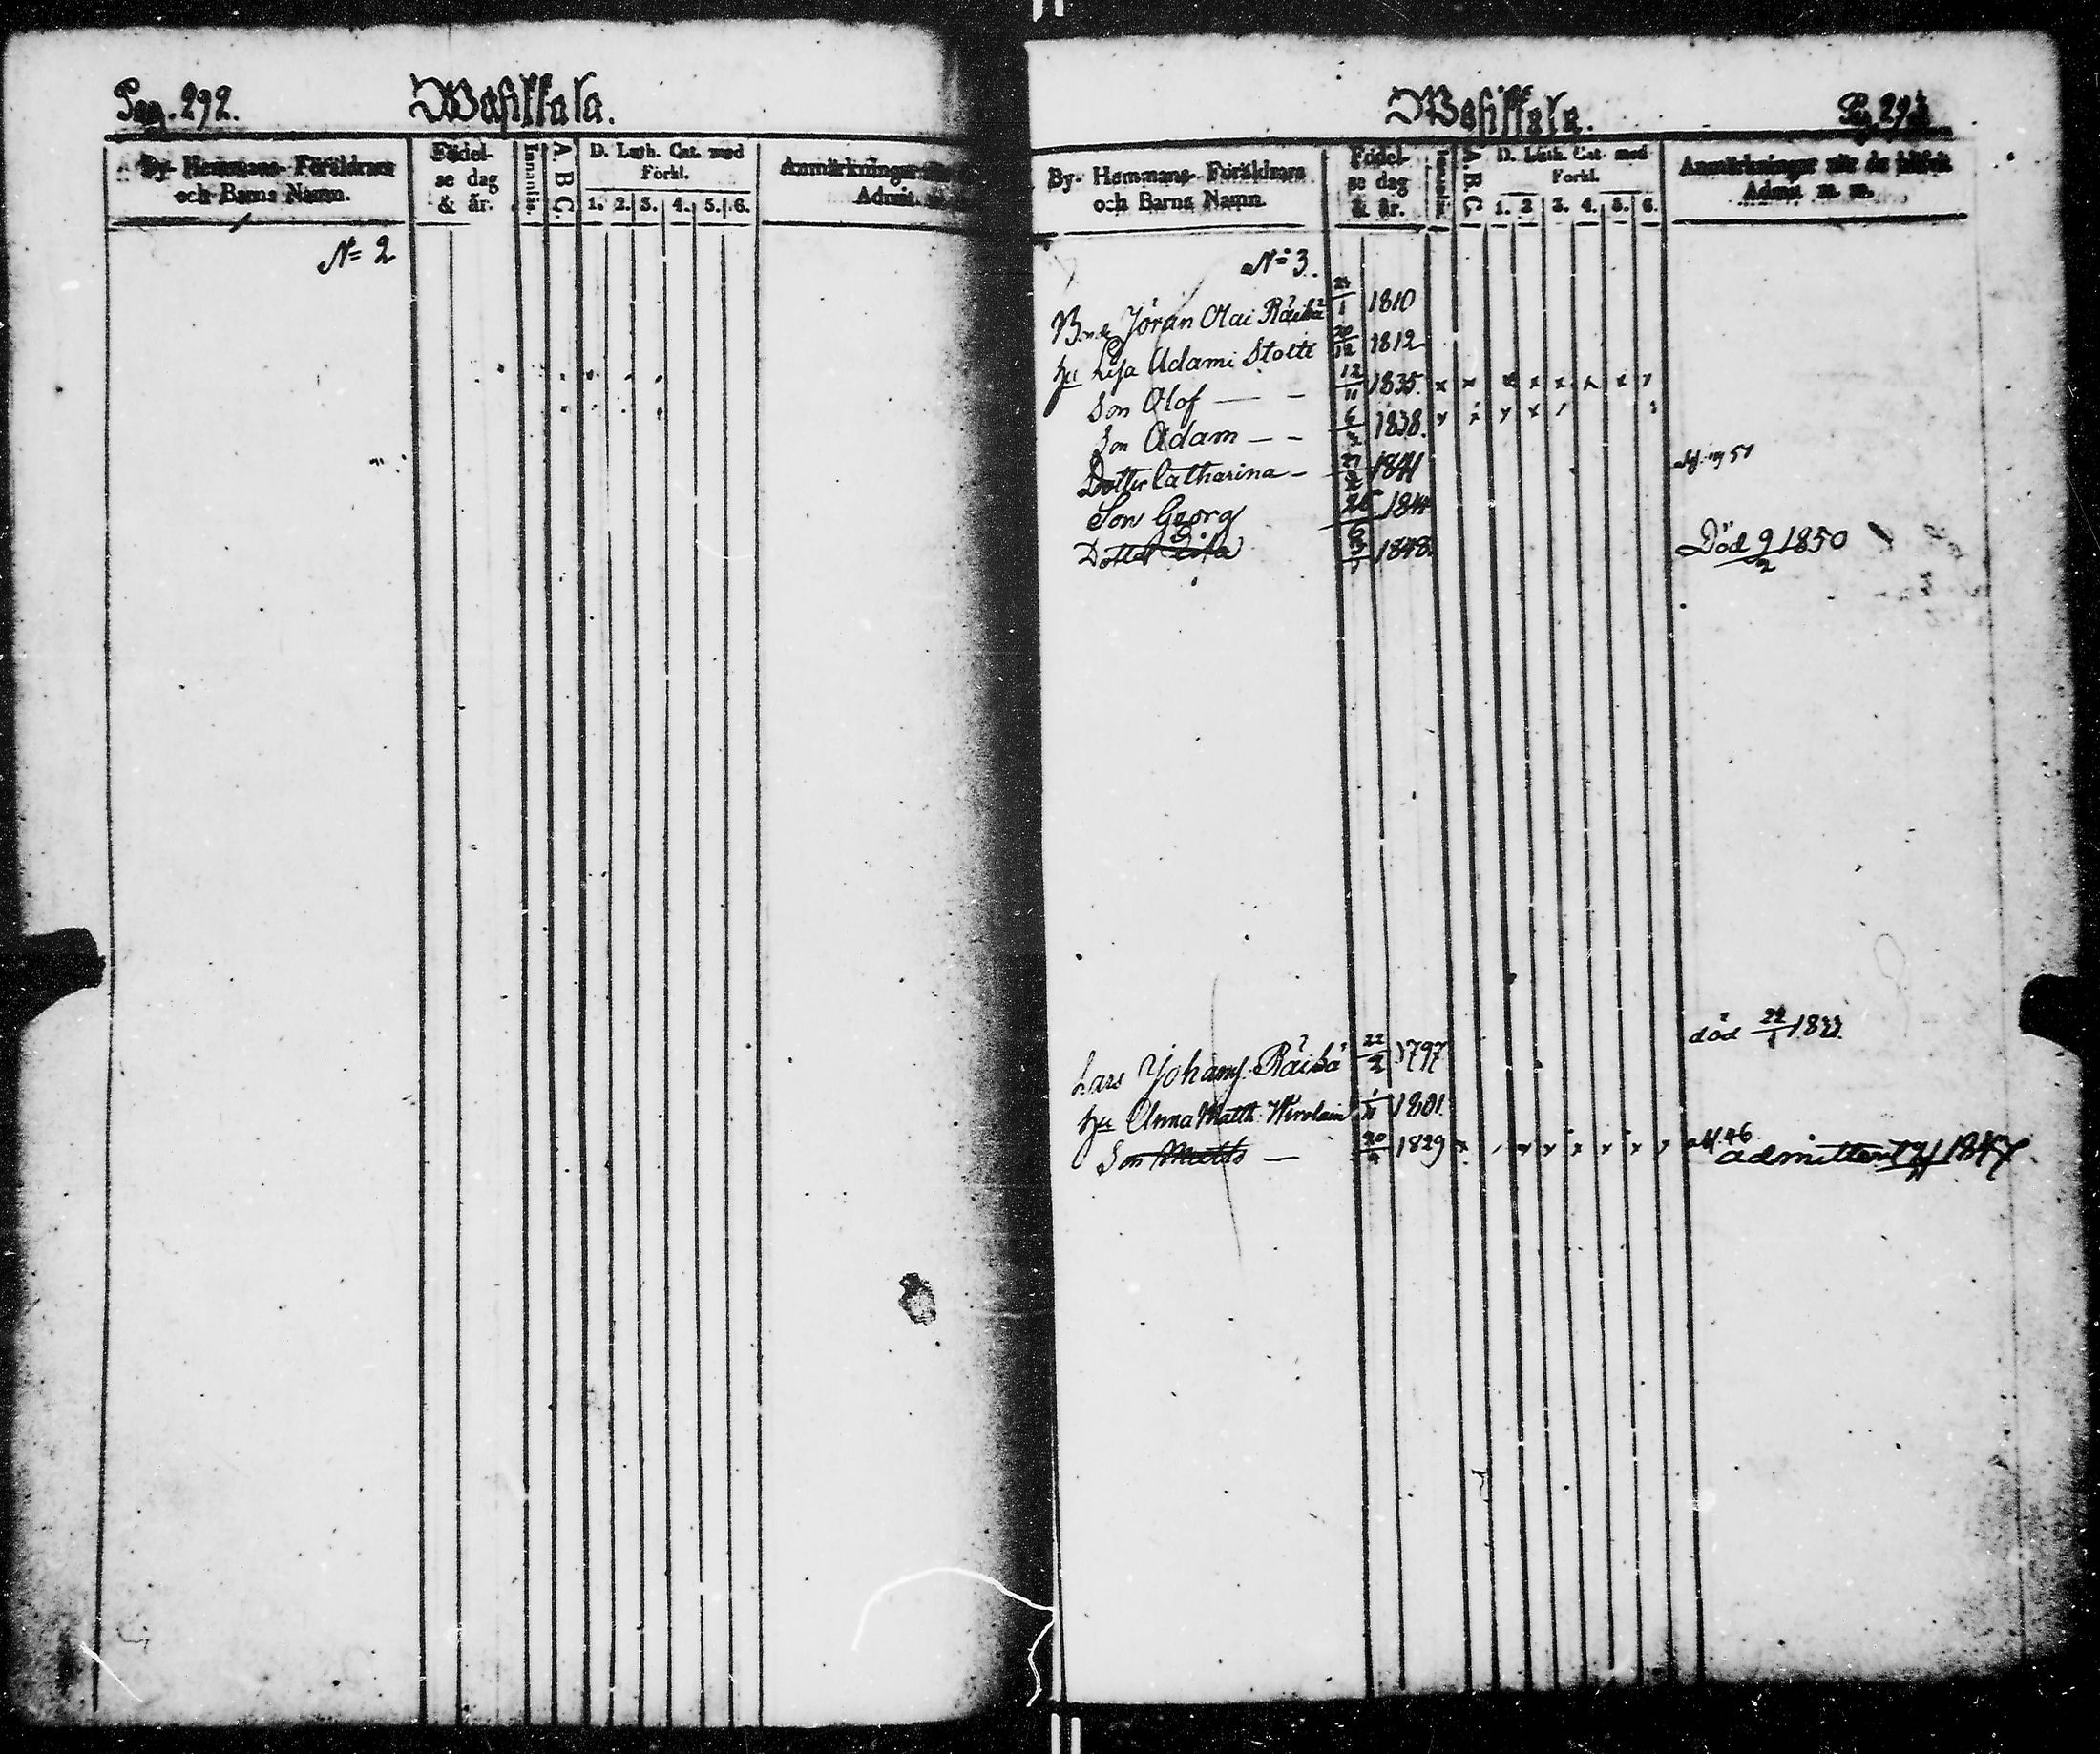 Pag. 292.
Wasikkala.
By- Hemmans- Föräldrars
och Barns Namn.
Födel-
se dag
& år.
A. B. C.
D. Luth. Cat. med
Förkl.
1. 2. 3. 4. 5. 6.
Anmärkningar
Admit.
N= 2
Wasikkala.
Pag 293
By- Hemmans- Föräldrars
och Barns Namn.
Födel-
se dag
& år.
A. B. C.
D. Luth. Cat med
Förkl.
1. 2 3. 4. 5. 6.
Anmärkningar när de blifvit
Admit. m. m.
N= 3.
Jöran Olai Räihä 1 1810
hu Lisa Adami Stolt 20/12 1812
Son Olof — – 12/11 1835. x x x x x x x
Son Adam – – 6 1838.
Dotter Catharina – 27 1841
Son Georg 1844
Dotter 1848. Död 9/2 1850
Lars Johans. Räihä 22/2 1797 död
hu Anna Matth. 1/11 1801.
Son Matts — 20 1829 x x x x x x
admitterat 1847.